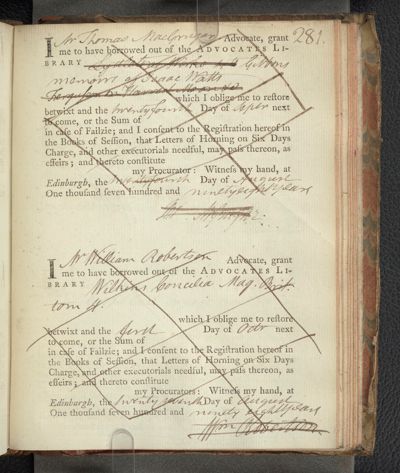 281.
I Mr Thomas MacGrugar Advocate, grant
me to have borrowed out of the ADVOCATES LI-
BRARY Works 4to Gibbons
memoirs of Isaac Watts
which I oblige me to reſtore
betwixt and the twentyfourth Day of Sepr next
to come, or the Sum of
in caſe of Failzie; and I conſent to the Regiſtration hereof in
the Books of Seſſion, that Letters of Horning on Six Days
Charge, and other executorials needful, may paſs thereon, as
effeirs; and thereto conſtitute
my Procurator: Witneſs my hand, at
Edinburgh, the twentyfourth Day of August
One thouſand ſeven hundred and ninetyeight years
I Mr William Robertson Advocate, grant
me to have borrowed out of the ADVOCATES LI-
BRARY Wilkins Concilia Mag. Brit.
tom
which I oblige me to reſtore
betwixt and the first Day of Octr next
to come, or the Sum of
in caſe of Failzie; and I conſent to the Regiſtration hereof in
the Books of Seſſion, that Letters of Horning on Six Days
Charge, and other executorials needful, may paſs thereon, as
effeirs; and thereto conſtitute
my Procurators: Witneſs my hand, at
Edinburgh, the twenty seventh Day of August
One thouſand ſeven hundred and ninety eight years
Wm Robertson